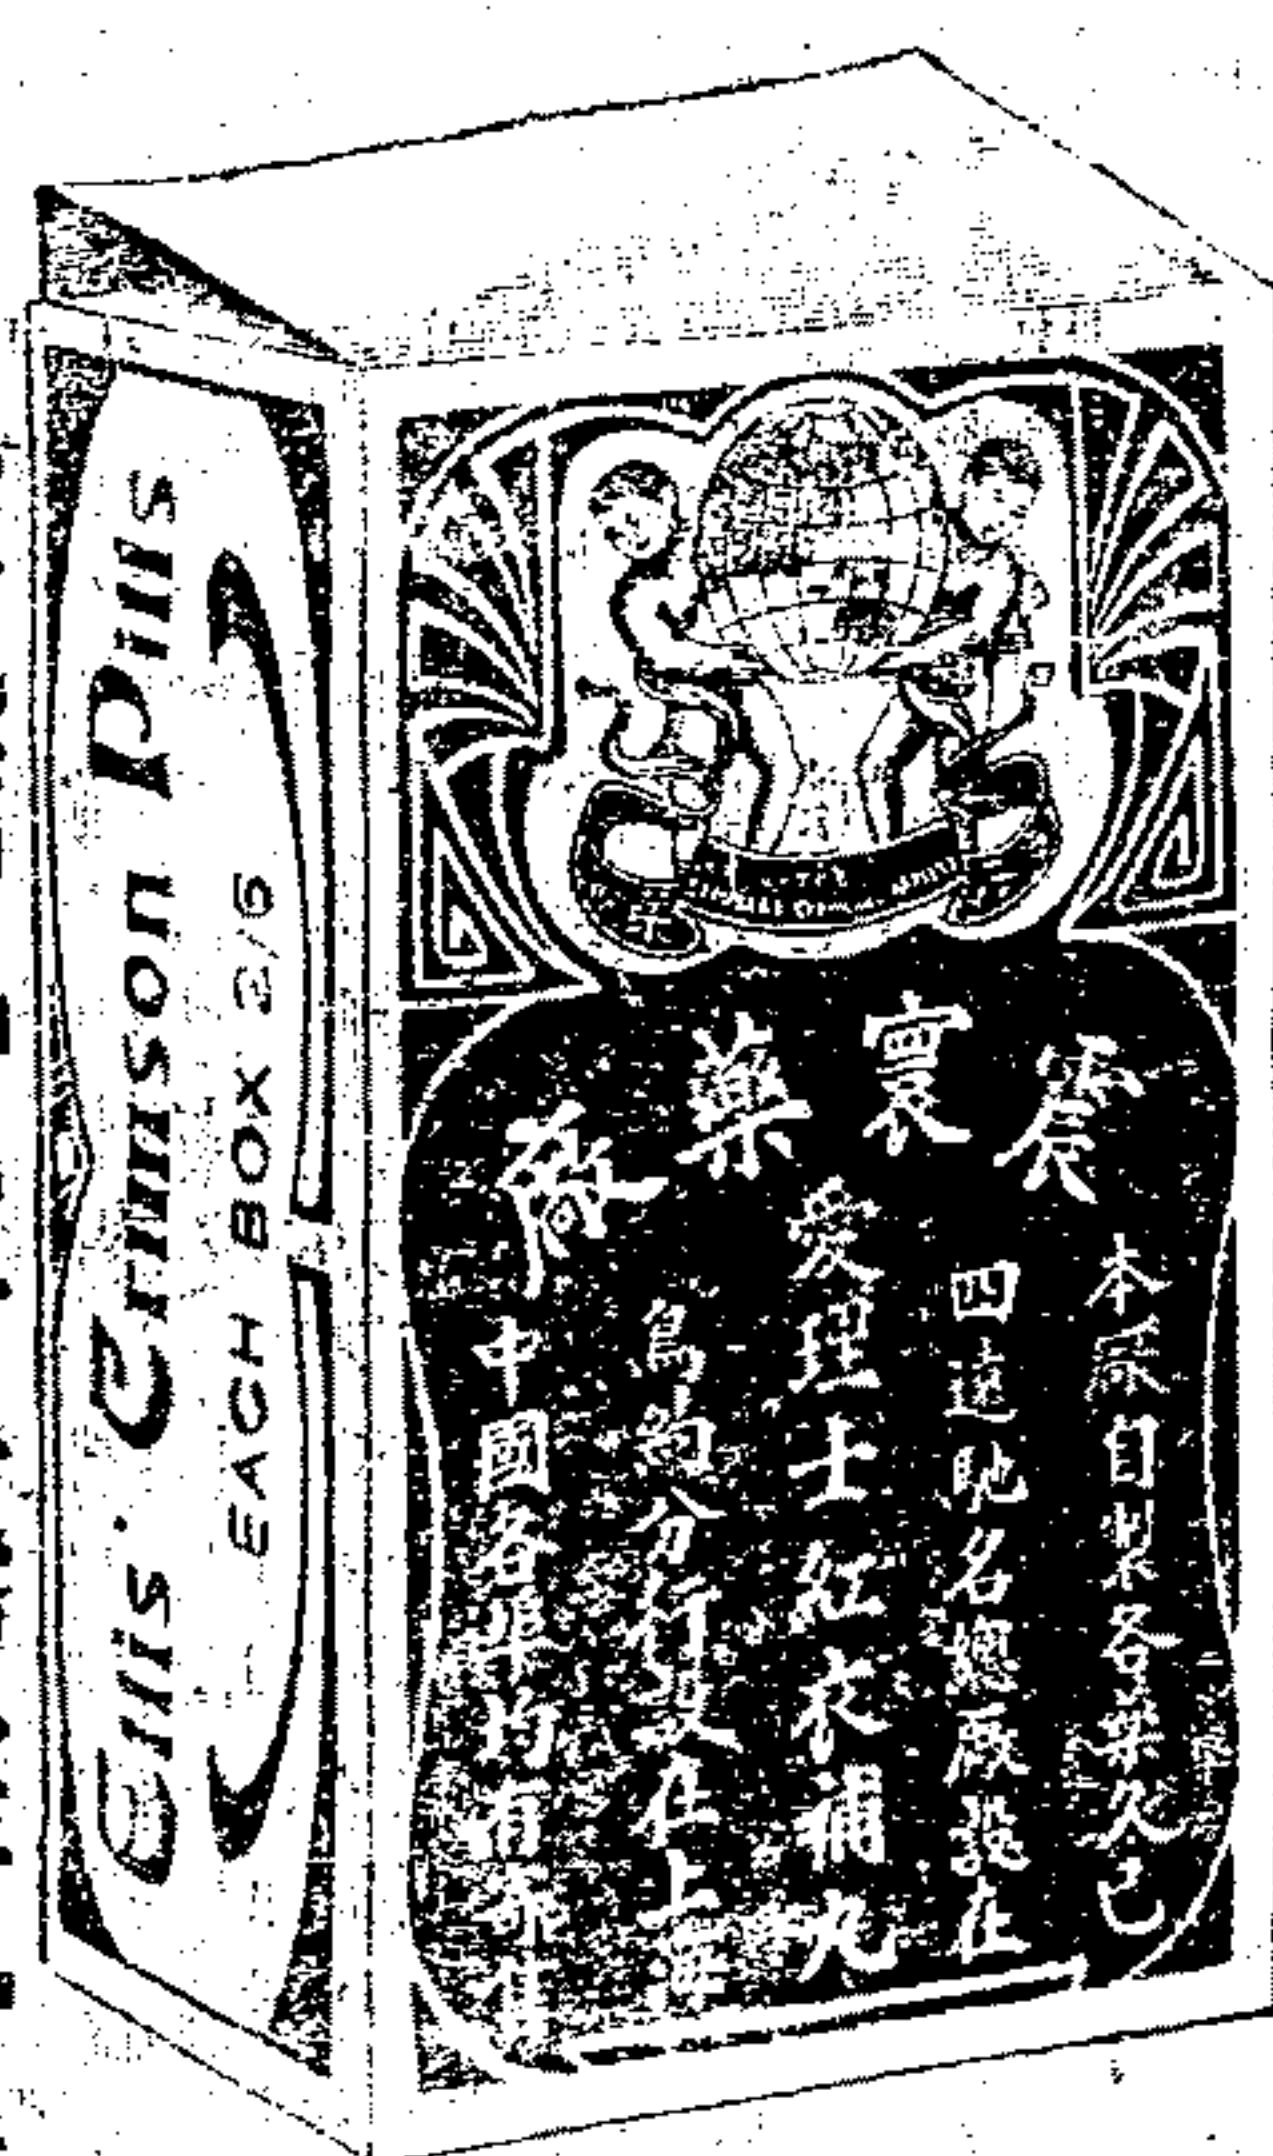 Ellis' Crimson Pills
EACH BOX 2/6
震寰藥廠
本廠自製各藥久已
四遠馳名總廠設在
愛理士紅衣補丸
島紐分行設在上海
中國各埠均有寄售